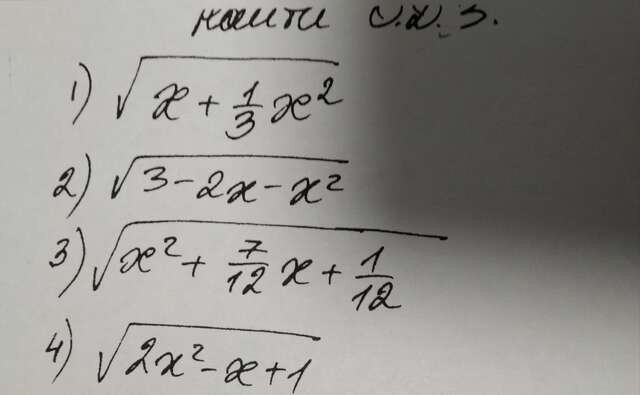 найти о.д.з.
1) √(x + 1/3 x²)
2) √(3 - 2x - x²)
3) √(x² + 7/12 x + 1/12)
4) √(2x² - x + 1)